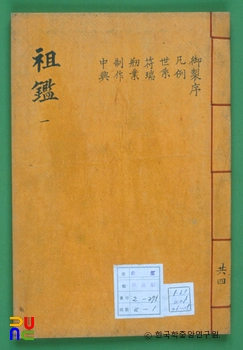 祖鑑 一
御製序
凡例
世系
符瑞
刱業
制作
中興
共四
한국학중앙연구원